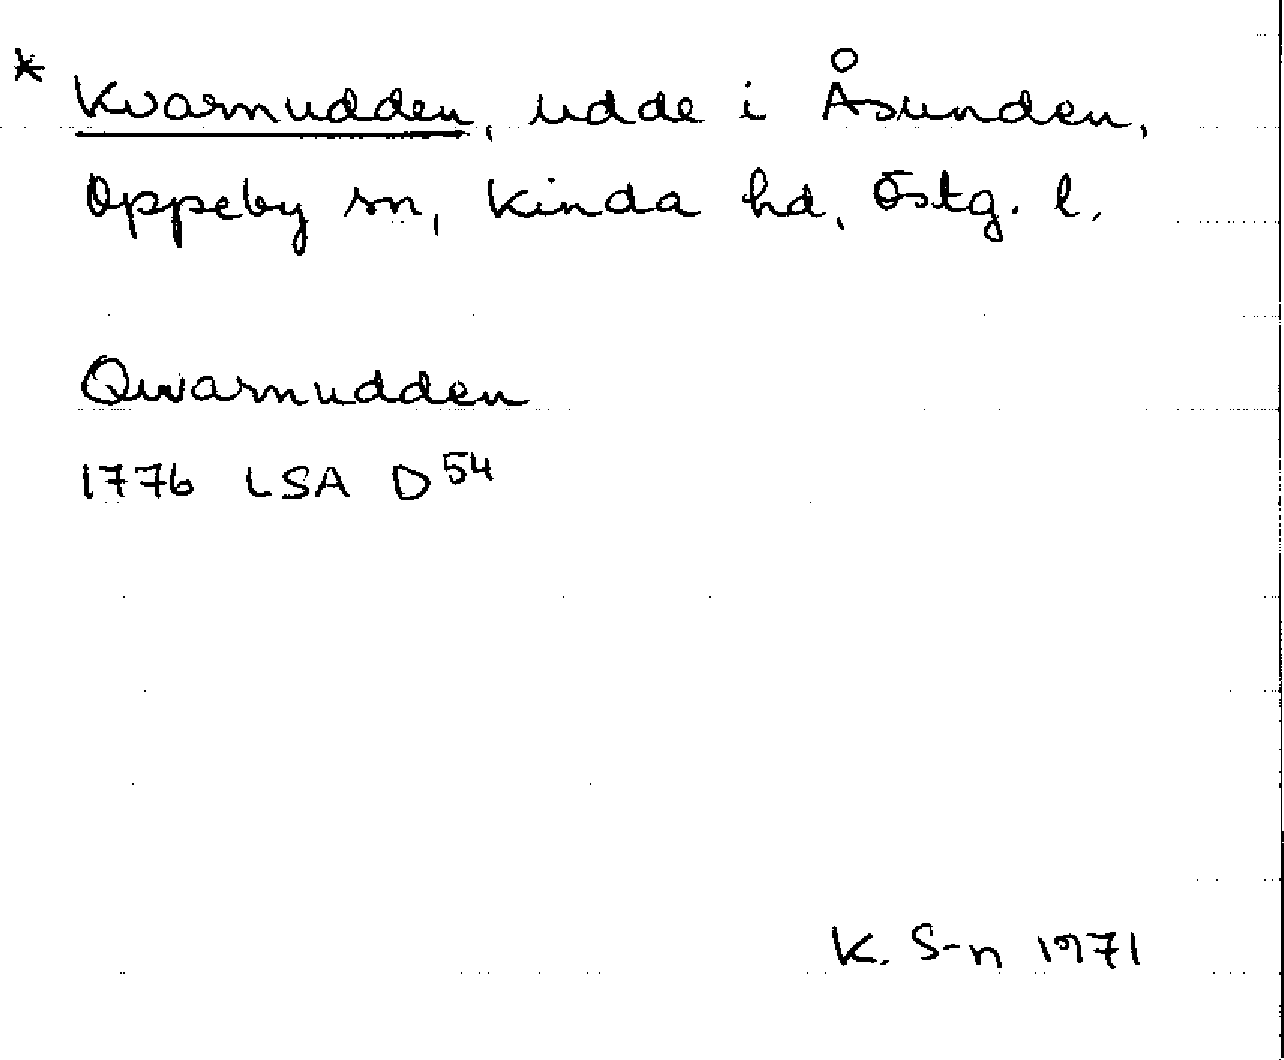 * Kvarnudden, udde i Åsunden,
Oppeby sn, Kinda hd, Östg. l.
Qwarnudden
1776 LSA D54
K. S-n 1971